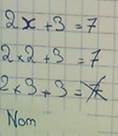 2x+3=7
2×2+3=7
2×3+3=7
Nom